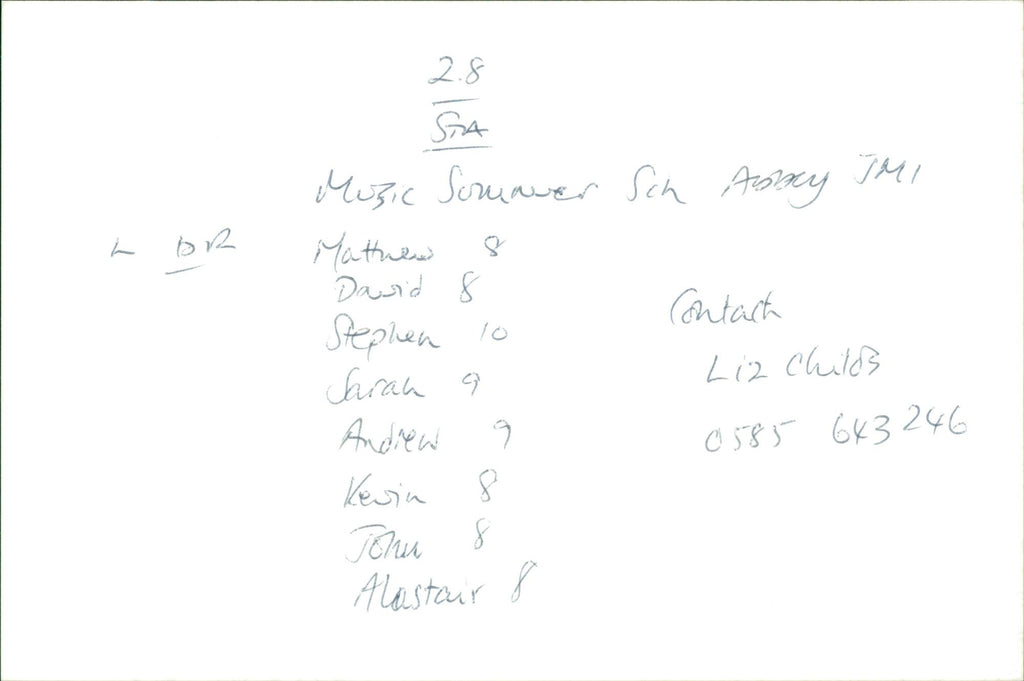 2.8
STA
Music Summer Sch Abbey JMI
L DR
Matthew 8
David 8
Stephen 10
Sarah 9
Andrew 9
Kevin 8
John 8
Alastair 8
Contact
Liz Childs
0585 643 246